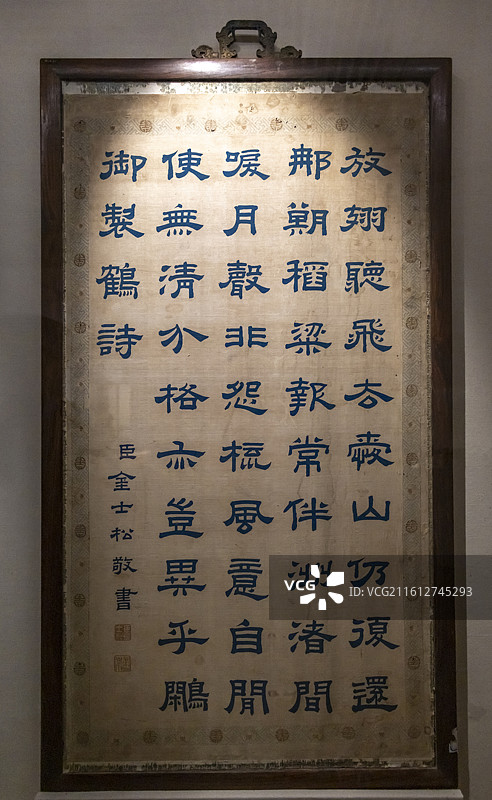 放翅聽飛去山仍復還
那期稻粱報常伴洲渚間
唳月聲非怨梳風意自閒
使無清介格亦豈異乎鷳
御製鶴詩
臣金士松敬書
VCG
ID:VCG211612745293